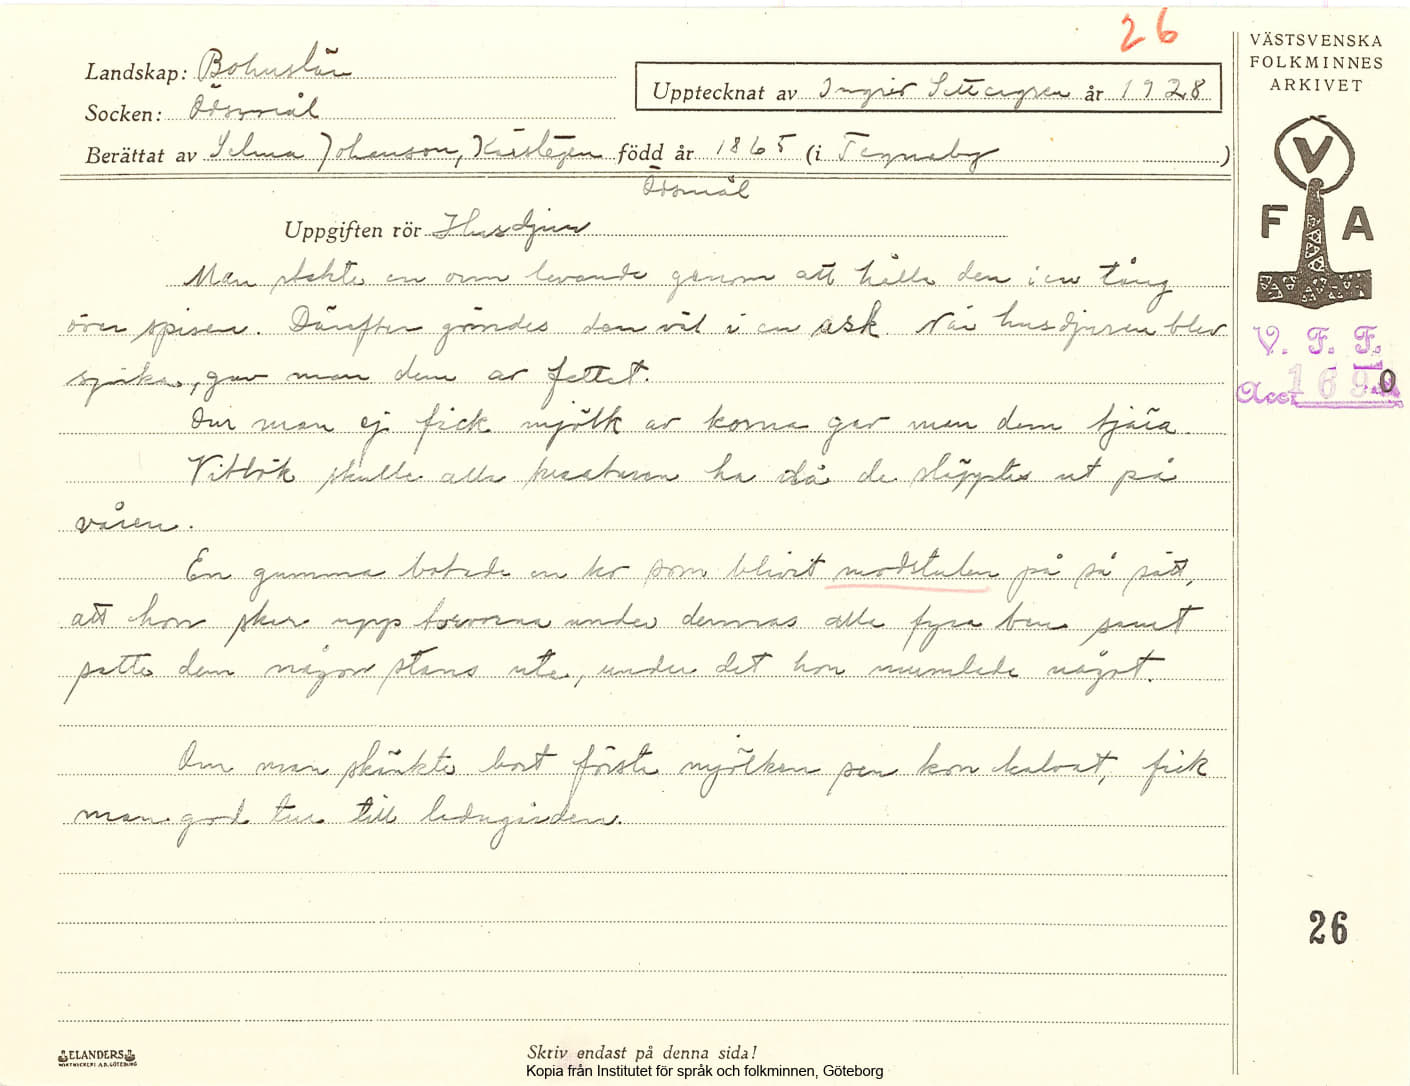 26
VÄSTSVENSKA
FOLKMINNES
ARKIVET
Landskap: Bohuslän
Upptecknat av Ingrid år 1928
Socken: Ödsmål
Berättat av Selma Johanson, född år 1865 (i )
Ödsmål
V
F A
Uppgiften rör Husdjur
Man stekte en orm levande genom att hålla den i en tång
över spisen. Därefter gömdes den väl i en ask När husdjuren blev
sjuka, gav man dem av fettet.
Om man ej fick mjölk av korna gav man dem tjära.
Vitlök skulle alla kreaturen ha då de släpptes ut på
våren.
En gumma botade en ko som blivit modstulen på så sätt,
att hon skar upp torvorna under dennas alla fyra ben samt
satte dem någon stans ute, under det hon mumlade något.
Om man skänkte bort första mjölken sen kon kalvat, fick
man god tur till ladugården.
V. F. F.
Acc. 1690
26
ELANDERS
Skriv endast på denna sida!
Kopia från Institutet för språk och folkminnen, Göteborg